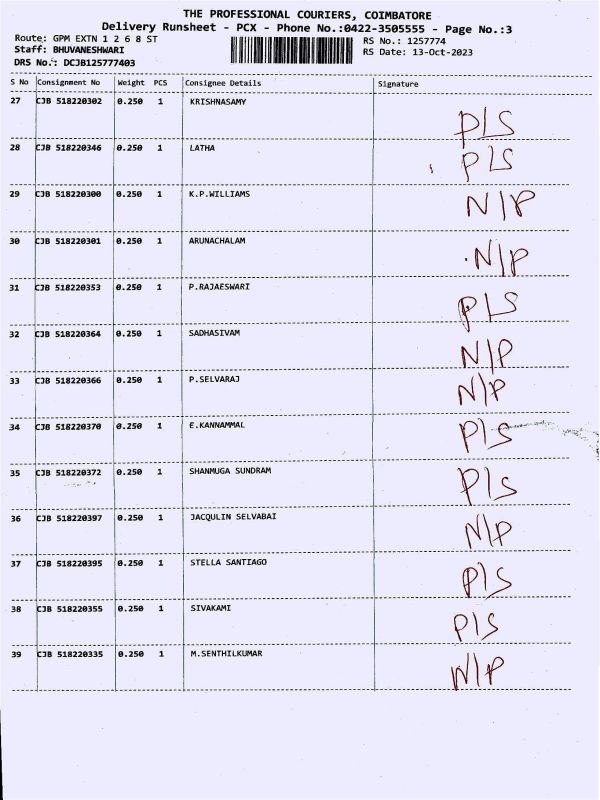 THE PROFESSIONAL COURIERS, COIMBATORE
Delivery Runsheet - PCX - Phone No.:0422-3505555 - Page No.:3
Route: GPM EXTN 1 2 6 8 ST
RS No.: 1257774
Staff: BHUVANESHWARI
RS Date: 13-Oct-2023
DRS No.: DCJB125777403
S No Consignment No Weight PCS Consignee Details Signature
27 CJB 518220302 0.250 1 KRISHNASAMY P/S
28 CJB 518220346 0.250 1 LATHA P/S
29 CJB 518220300 0.250 1 K.P.WILLIAMS N/P
30 CJB 518220301 0.250 1 ARUNACHALAM N/P
31 CJB 518220353 0.250 1 P.RAJAESWARI P/S
32 CJB 518220364 0.250 1 SADHASIVAM N/P
33 CJB 518220366 0.250 1 P.SELVARAJ N/P
34 CJB 518220370 0.250 1 E.KANNAMMAL P/S
35 CJB 518220372 0.250 1 SHANMUGA SUNDRAM P/S
36 CJB 518220397 0.250 1 JACQULIN SELVABAI N/P
37 CJB 518220395 0.250 1 STELLA SANTIAGO P/S
38 CJB 518220355 0.250 1 SIVAKAMI P/S
39 CJB 518220335 0.250 1 M.SENTHILKUMAR N/P